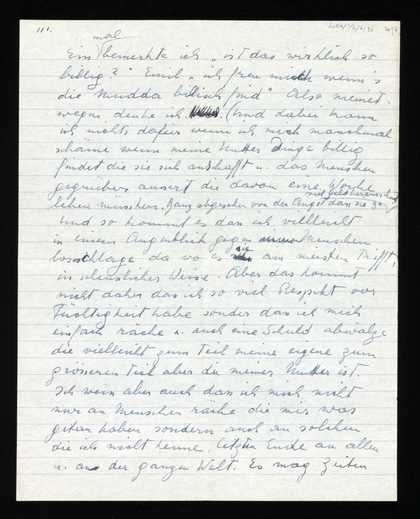 111.
mal
Ein bemerkte ich „ist das wirklich so
billig?" Emil „ich freu mich wenn's
die Mudda billich find" Also meinet-
wegen, denke ich. (Und dabei kann
ich nichts dafür wenn ich mich manchmal
schäme wenn meine Mutter Dinge billig
findet die sie sich anschafft u. das Menschen
gegenüber äusert die davon eine Woche
leben müssen. Ganz abgesehen von der Angst dan sie
Und so kommt es dan ich vielleicht
in einem Augenblick gegen Menschen
losschlage da wo es sie am meisten trifft,
in scheuslicher Weise. Aber das kommt
nicht daher das ich so viel Respekt vor
habe sonder das ich mich
einfach räche u. auch eine Schuld abwälze
die vielleicht zum teil meine eigene zum
grösseren teil aber die meiner Mutter ist.
Ich weis aber auch das ich mich nicht
nur an Menschen räche die mir was
getan haben sondern auch an solchen
die ich nicht kenne. Letzten Ende an allen
u. an der ganzen Welt. Es mag Zeiten